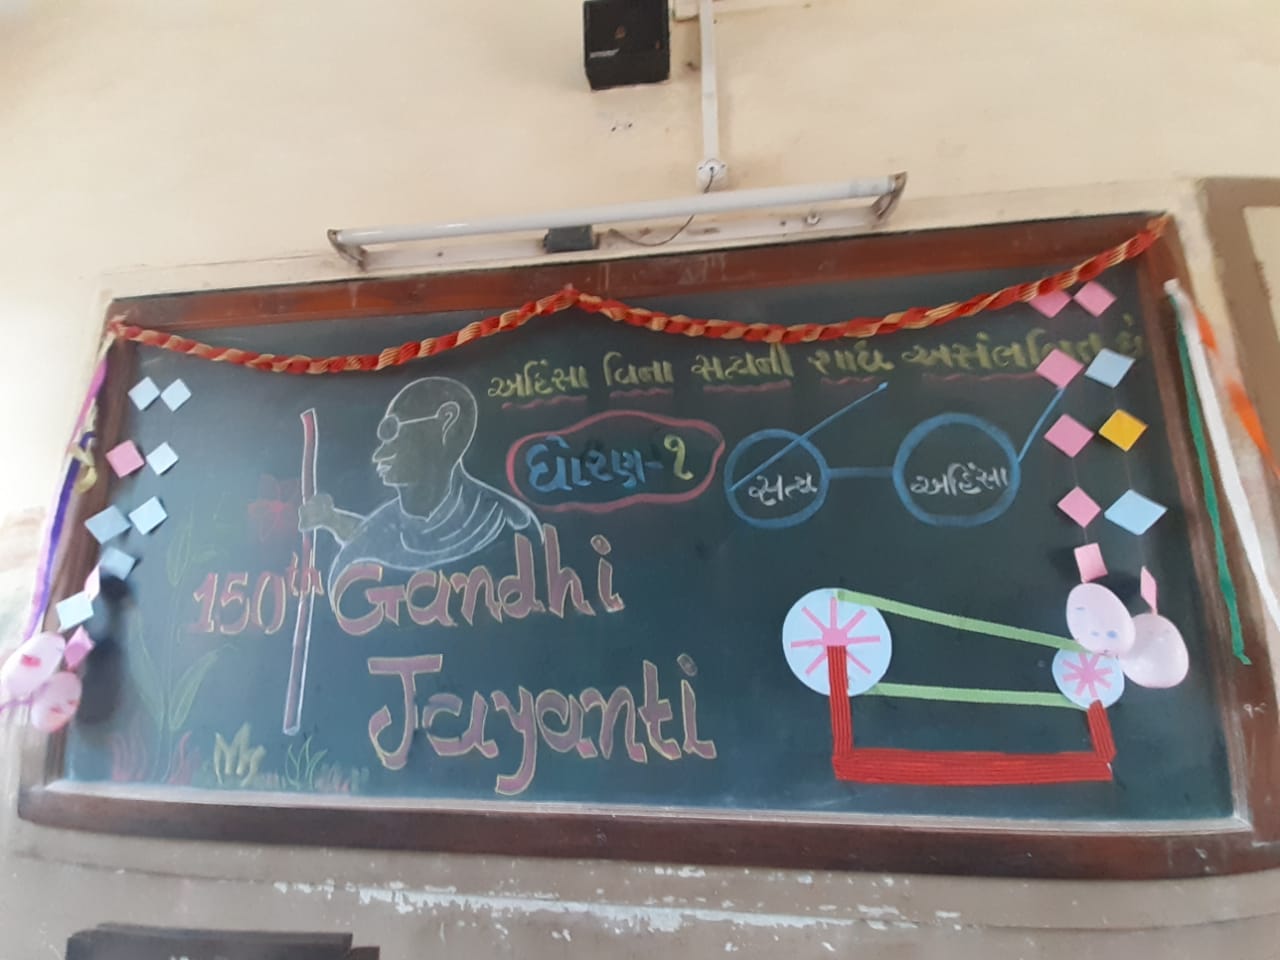 અહિંસા વિના સત્યની શોધ અસંભવિત છે
ધોરણ-૧
સત્ય
અહિંસા
150th Gandhi
Jayanti